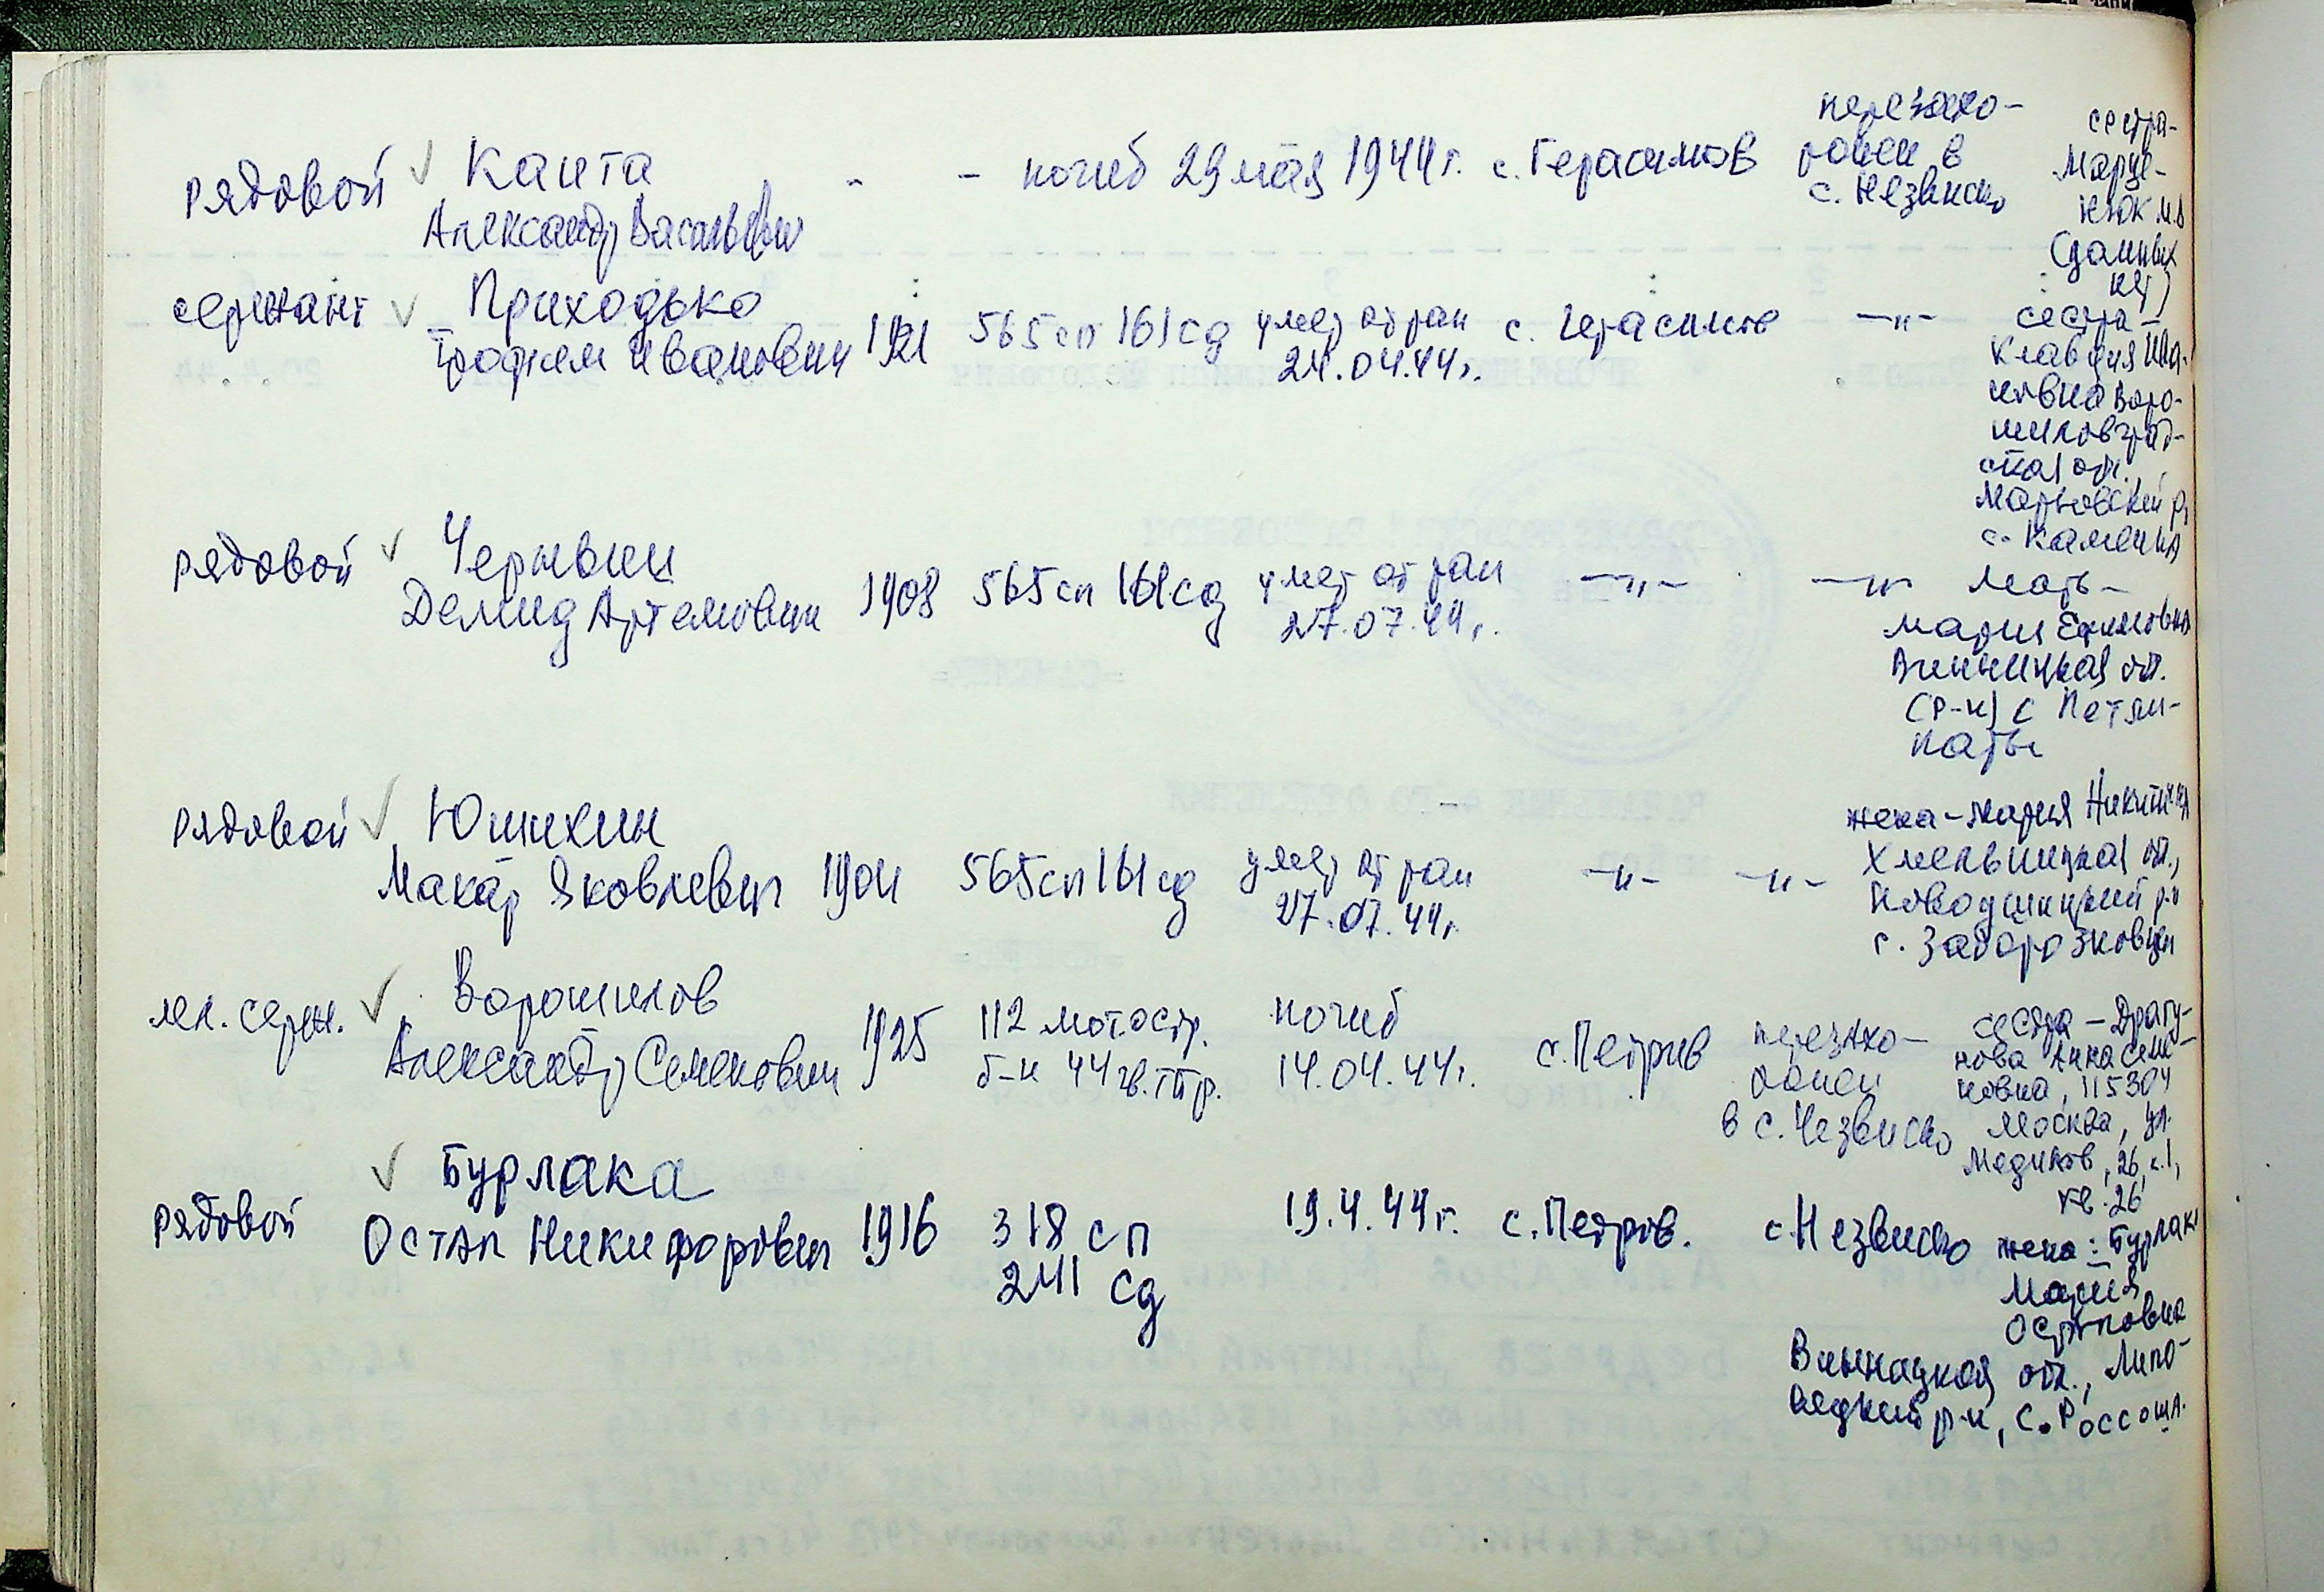 рядовой Капта - - погиб 29 мая 1944 г. с. Герасимов перезахо-
ронен в
с. Незвиско
Александр Васильевич
сестра-
Марце-
нюк М.В
(данных
нет)
сержант Приходько
Трофим Иванович 1921 565 сп 161 сд умер от ран
24.04.44 г. с. Герасимов -"-
сестра -
Клавдия Ива-
новна Воро-
шиловград-
ская обл.,
Марьевский р,
с. Каменка
рядовой
Демид Артемович 1908 565 сп 161 сд умер от ран
27.07.44 г. -"- -"-
мать -
Мария Ефимовна
Винницкая обл.
(р-н) с
рядовой Юшихин
Макар Яковлевич 1904 565 сп 161 сд умер от ран
27.07.44 г. -"- -"-
жена - Мария Никитична
Хмельницкая обл.,
с.
мл. серж. Ворошилов
Александр Семенович 1925 112 мотостр.
б-н 44 гв. тбр. погиб
14.04.44 г. с. Петрив перезахо-
ронен
в с. Незвиско
сестра - Драгу-
нова Анна Семе-
новна, 115304
Москва, ул.
Медиков, 26, к. 1,
кв. 26
рядовой Бурлака
Остап Никифорович 1916 318 сп
241 сд 19.4.44 г. с. Петрив. с. Незвиско
жена: Бурлака
Мария
Остаповна
Винницкая обл., Липо-
вецкий р-н, с. Россоша.